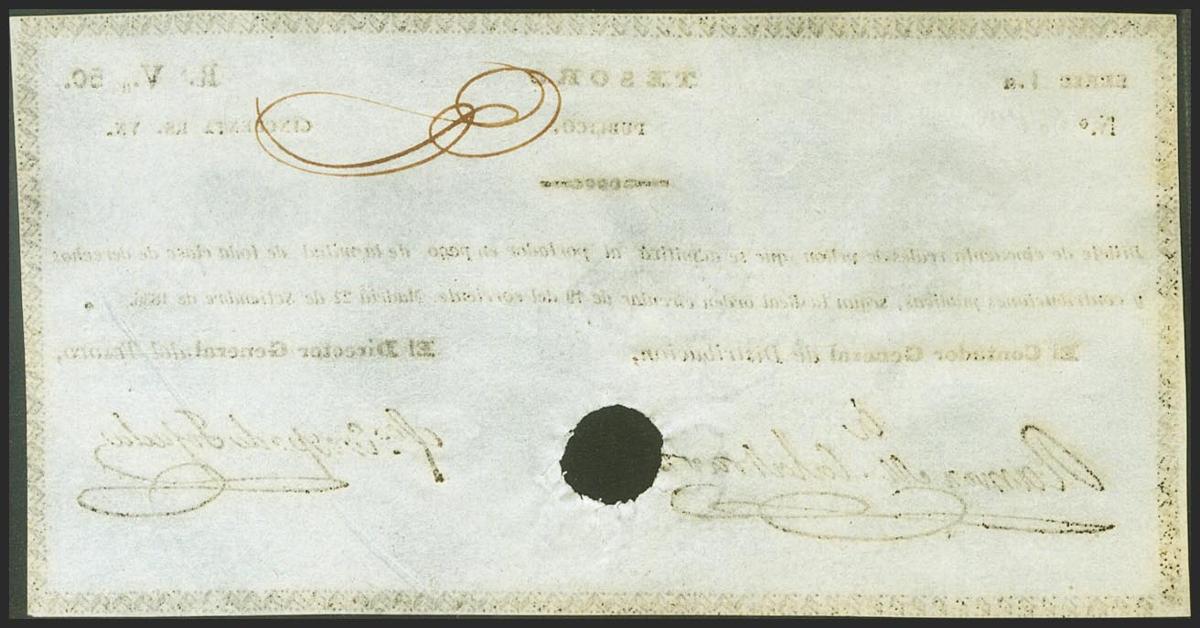 SERIE 1.ª TESORO R.ˢ V.ⁿ 50.
N.º PUBLICO. CINCUENTA RS. VN.
Billete de cincuenta reales de vellon que se admitirá al portador en pago de la mitad de toda clase de derechos
y contribuciones públicas, segun la Real orden circular de 19 del corriente. Madrid 22 de setiembre de
El Contador General de Distribucion, El Director General del Tesoro,